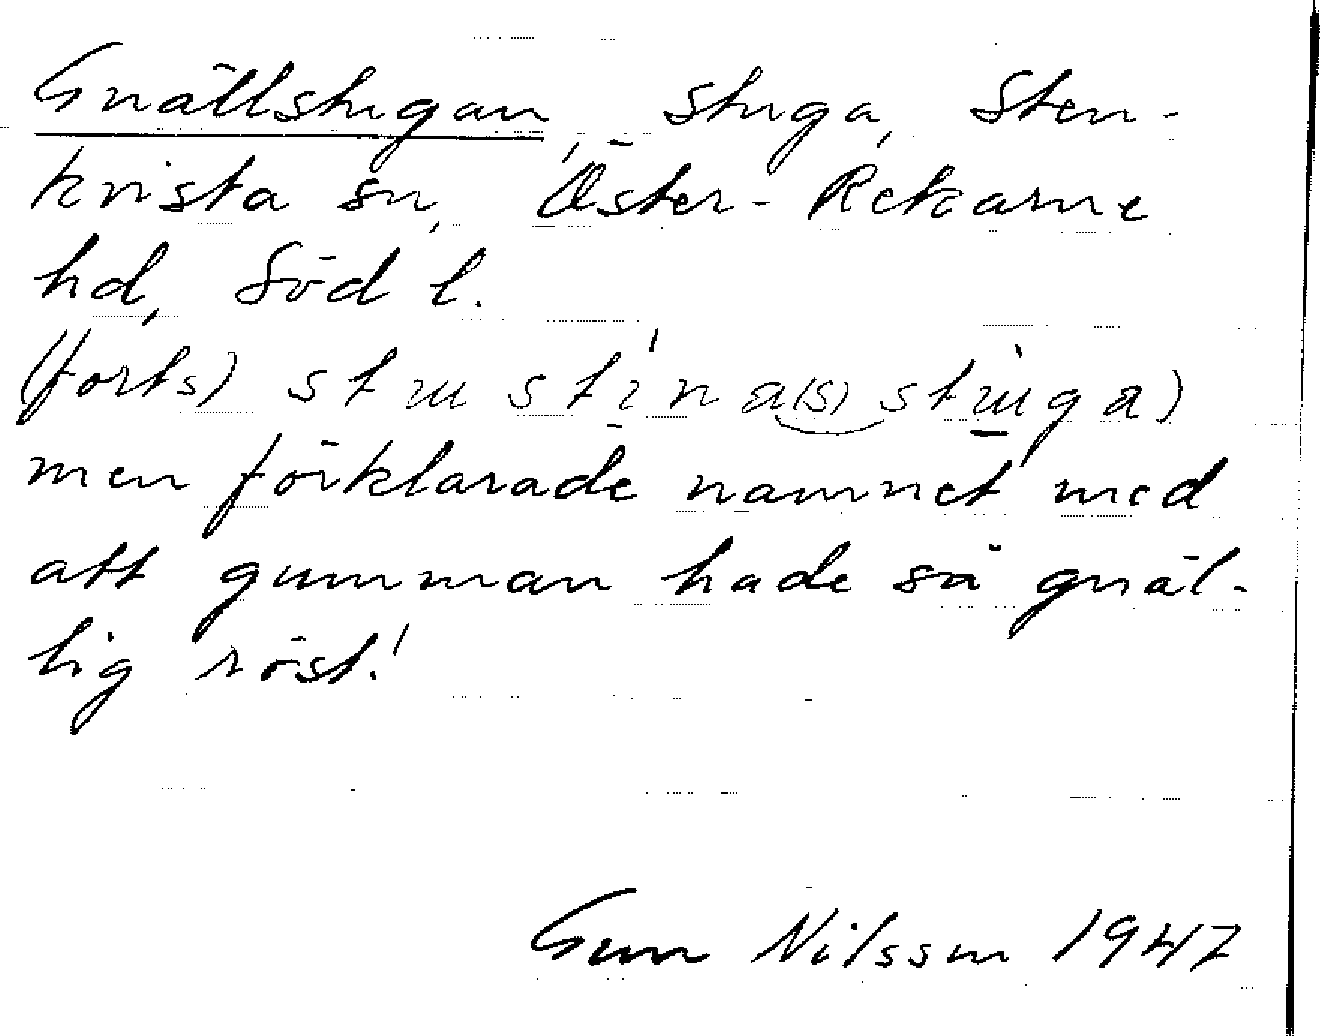 Gnällstugan, stuga, Sten-
kvista sn, Öster-Rekarne
hd, Söd l.
(forts) stɯstina(s)stɯga)
men förklarade namnet med
att gumman hade så gnäl-
lig röst!
Gun Nilsson 1947